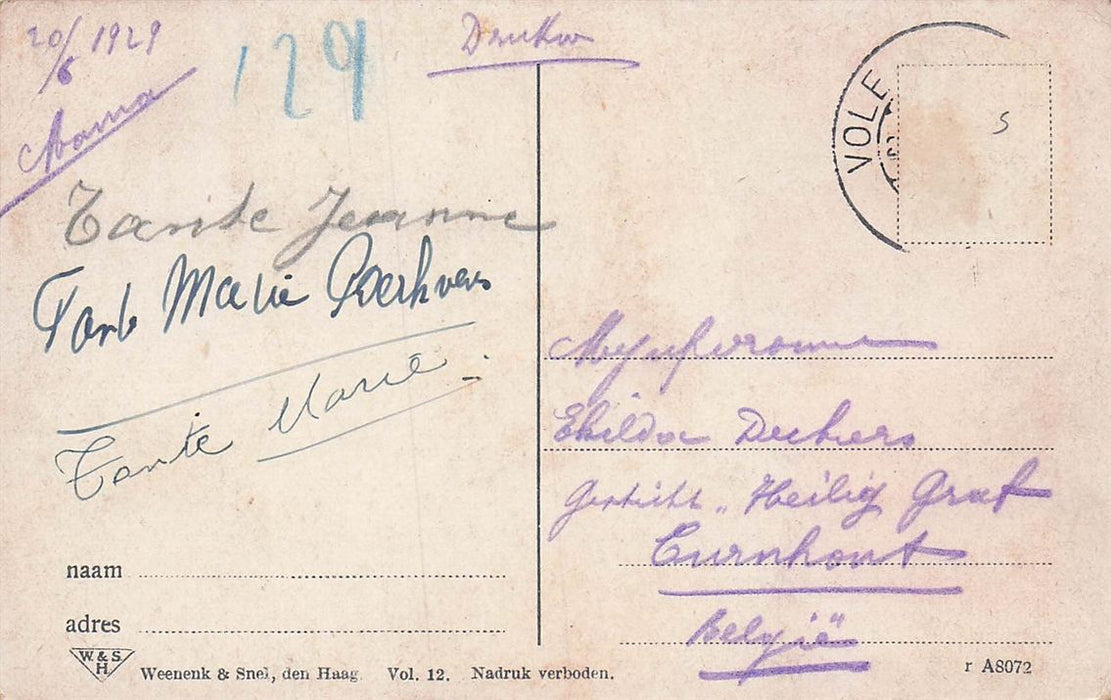 20/6 1929
Mama
129
Tante Jeanne
Tante Marie
Tante Marie
VOLE
S
Mejufvrouw
Gesticht „Heilig Graf
Turnhout
België
naam
adres
W.&S.
H.
Weenenk & Snel, den Haag. Vol. 12. Nadruk verboden.
r A8072